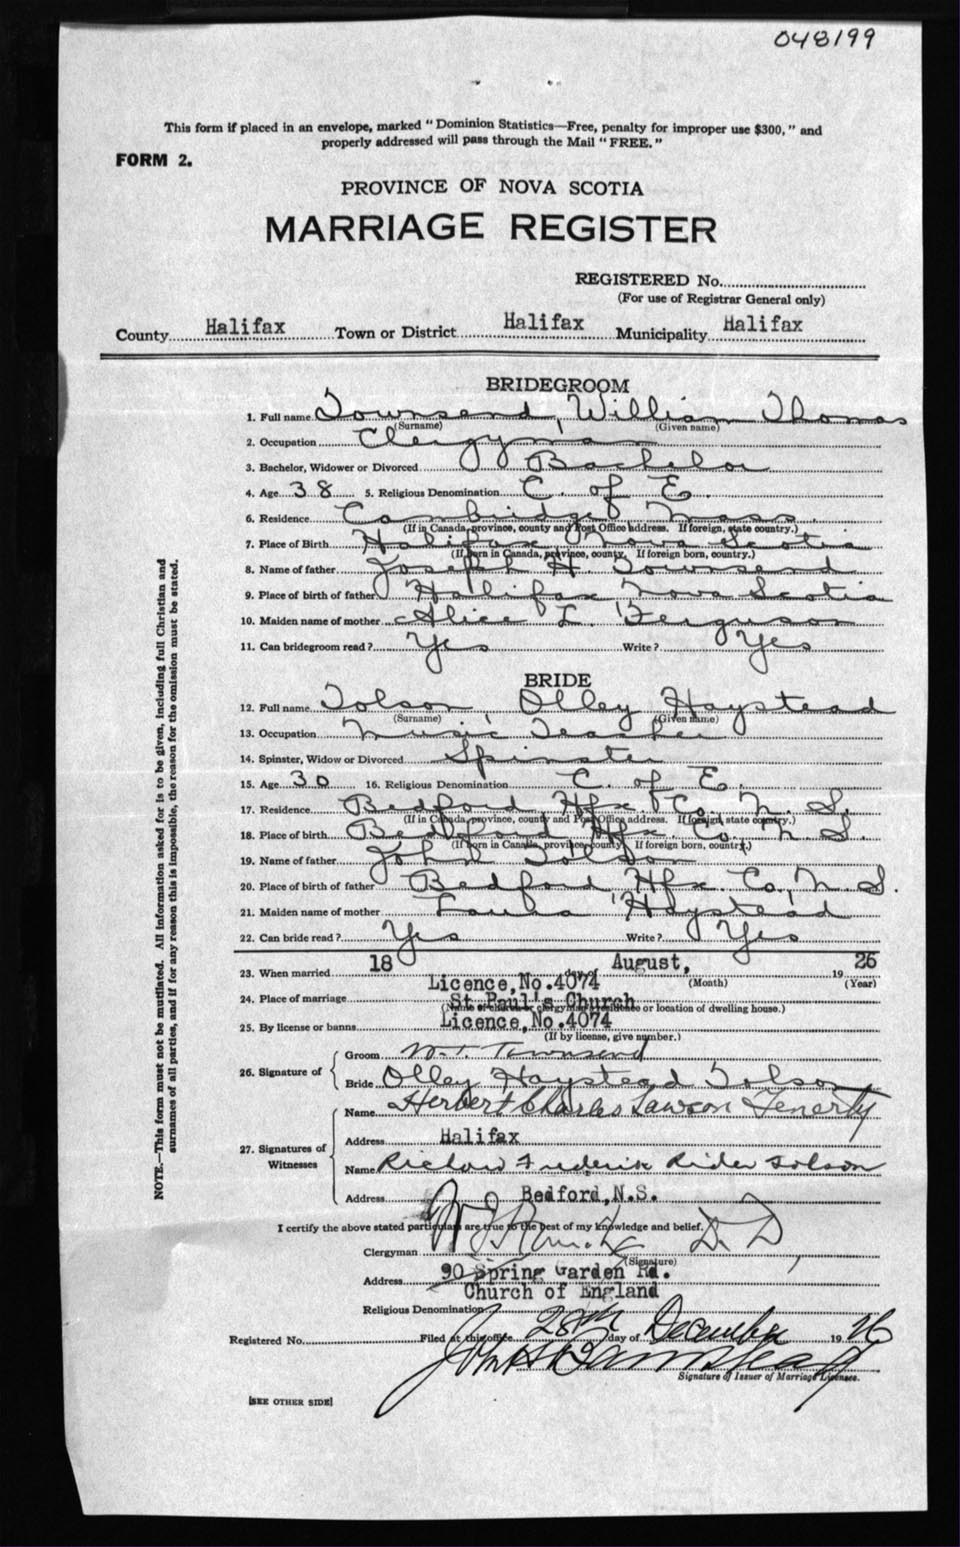 048199
This form if placed in an envelope, marked "Dominion Statistics—Free, penalty for improper use $300," and
properly addressed will pass through the Mail "FREE."
FORM 2.
PROVINCE OF NOVA SCOTIA
MARRIAGE REGISTER
REGISTERED No.
(For use of Registrar General only)
County Halifax Town or District Halifax Municipality Halifax
BRIDEGROOM
1. Full name Townsend, William Thomas
(Surname) (Given name)
2. Occupation Clergyman
3. Bachelor, Widower or Divorced Bachelor
4. Age 38 5. Religious Denomination C. of E.
6. Residence Cambridge Mass.
(If in Canada, province, county and Post Office address. If foreign, state country.)
7. Place of Birth Halifax Nova Scotia
(If born in Canada, province, county. If foreign born, country.)
8. Name of father Joseph H. Townsend
9. Place of birth of father Halifax Nova Scotia
10. Maiden name of mother Alice L. Ferguson
11. Can bridegroom read? Yes Write? Yes
BRIDE
12. Full name Tolson, Olley Haystead
(Surname) (Given name)
13. Occupation Music Teacher
14. Spinster, Widow or Divorced Spinster
15. Age 30 16. Religious Denomination C. of E.
17. Residence Bedford Hfx Co. N. S.
(If in Canada, province, county and Post Office address. If foreign, state country.)
18. Place of birth Bedford Hfx. Co. N. S.
(If born in Canada, province, county. If foreign born, country.)
19. Name of father John Tolson
20. Place of birth of father Bedford Hfx. Co, N. S.
21. Maiden name of mother Haystead
22. Can bride read? Yes Write? Yes
23. When married 18 day of August, 1926
(Month) (Year)
Licence, No.4074
24. Place of marriage St Paul's Church
(Name of church or clergyman residence or location of dwelling house.)
25. By license or banns Licence, No.4074
(If by license, give number.)
26. Signature of
Groom W. T. Townsend
Bride Olley Haystead Tolson
27. Signatures of Witnesses
Name Herbert Charles Lawson Fenerty
Address Halifax
Name Richard Frederick Rider Tolson
Address Bedford, N.S.
I certify the above stated particulars are true to the best of my knowledge and belief.
Clergyman D. D
(Signature)
Address 90 Spring Garden Rd.
Church of England
Religious Denomination
Registered No. Filed at this office 28th day of December 1926
Signature of Issuer of Marriage Licenses.
[SEE OTHER SIDE]
NOTE.—This form must not be mutilated. All information asked for is to be given, including full Christian and
surnames of all parties, and if for any reason this is impossible, the reason for the omission must be stated.